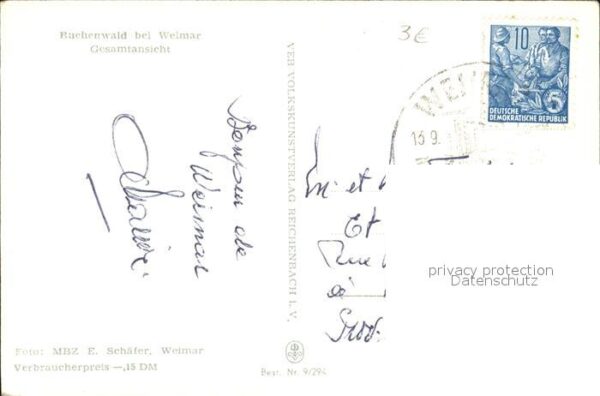 Buchenwald bei Weimar
Gesamtansicht
3€
10
DEUTSCHE
DEMOKRATISCHE REPUBLIK
5
WEI
13.9.
de
Weimar
VEB VOLKSKUNSTVERLAG REICHENBACH I. V.
et
Et
Rue
à
privacy protection
Datenschutz
Foto: MBZ E. Schäfer, Weimar
Verbraucherpreis —,15 DM
Best. Nr. 9/294